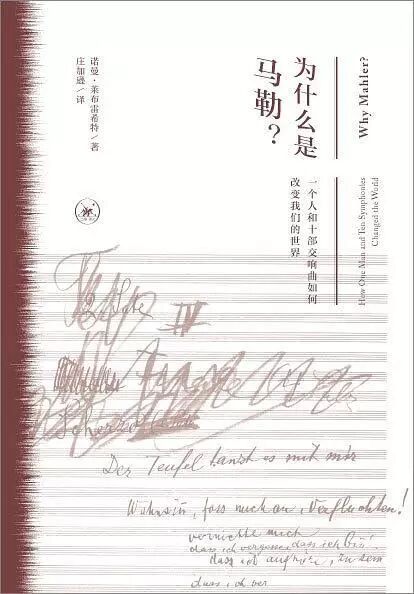 Why Mahler?
How One Man and Ten Symphonies
Changed the World
为什么是
马勒？
一个人和十部交响曲如何
改变我们的世界
诺曼·莱布雷希特／著
庄加逊／译
IV
Der Teufel tanzt es mit mir
Wahnsinn, fass mich an, Verfluchten!
vernichte mich
dass ich vergesse, dass ich bin!
dass ich aufhöre, zu sein
dass ich ver